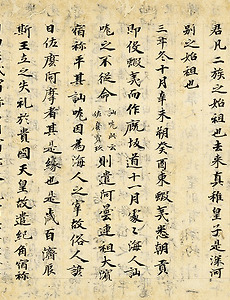 君凡二族之始祖也去来真稚皇子是深河
別之始祖也
三年冬十月辛未朔癸酉東蝦夷悉朝貢
即役蝦夷而作厩坂道十一月處々海人訕
哤之不從命訕哤此云佐麼賣玖則遣阿曇連祖大濱
宿祢平其訕哤因為海人之宰故俗人諺
曰佐麼阿摩者其是緣也是歳百濟辰
斯王立之失礼於貴國天皇故遣紀角宿祢